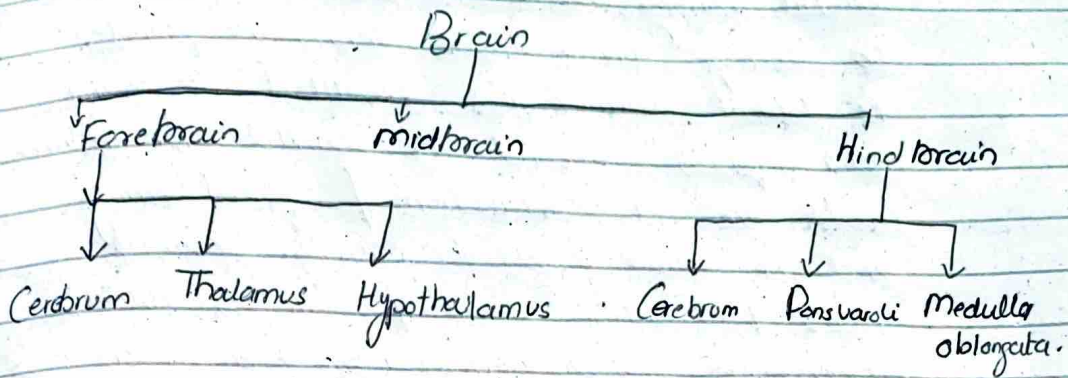 Brain
Forebrain midbrain Hind brain
Cerebrum Thalamus Hypothalamus Cerebrom Ponsvaroli Medulla
oblongata.